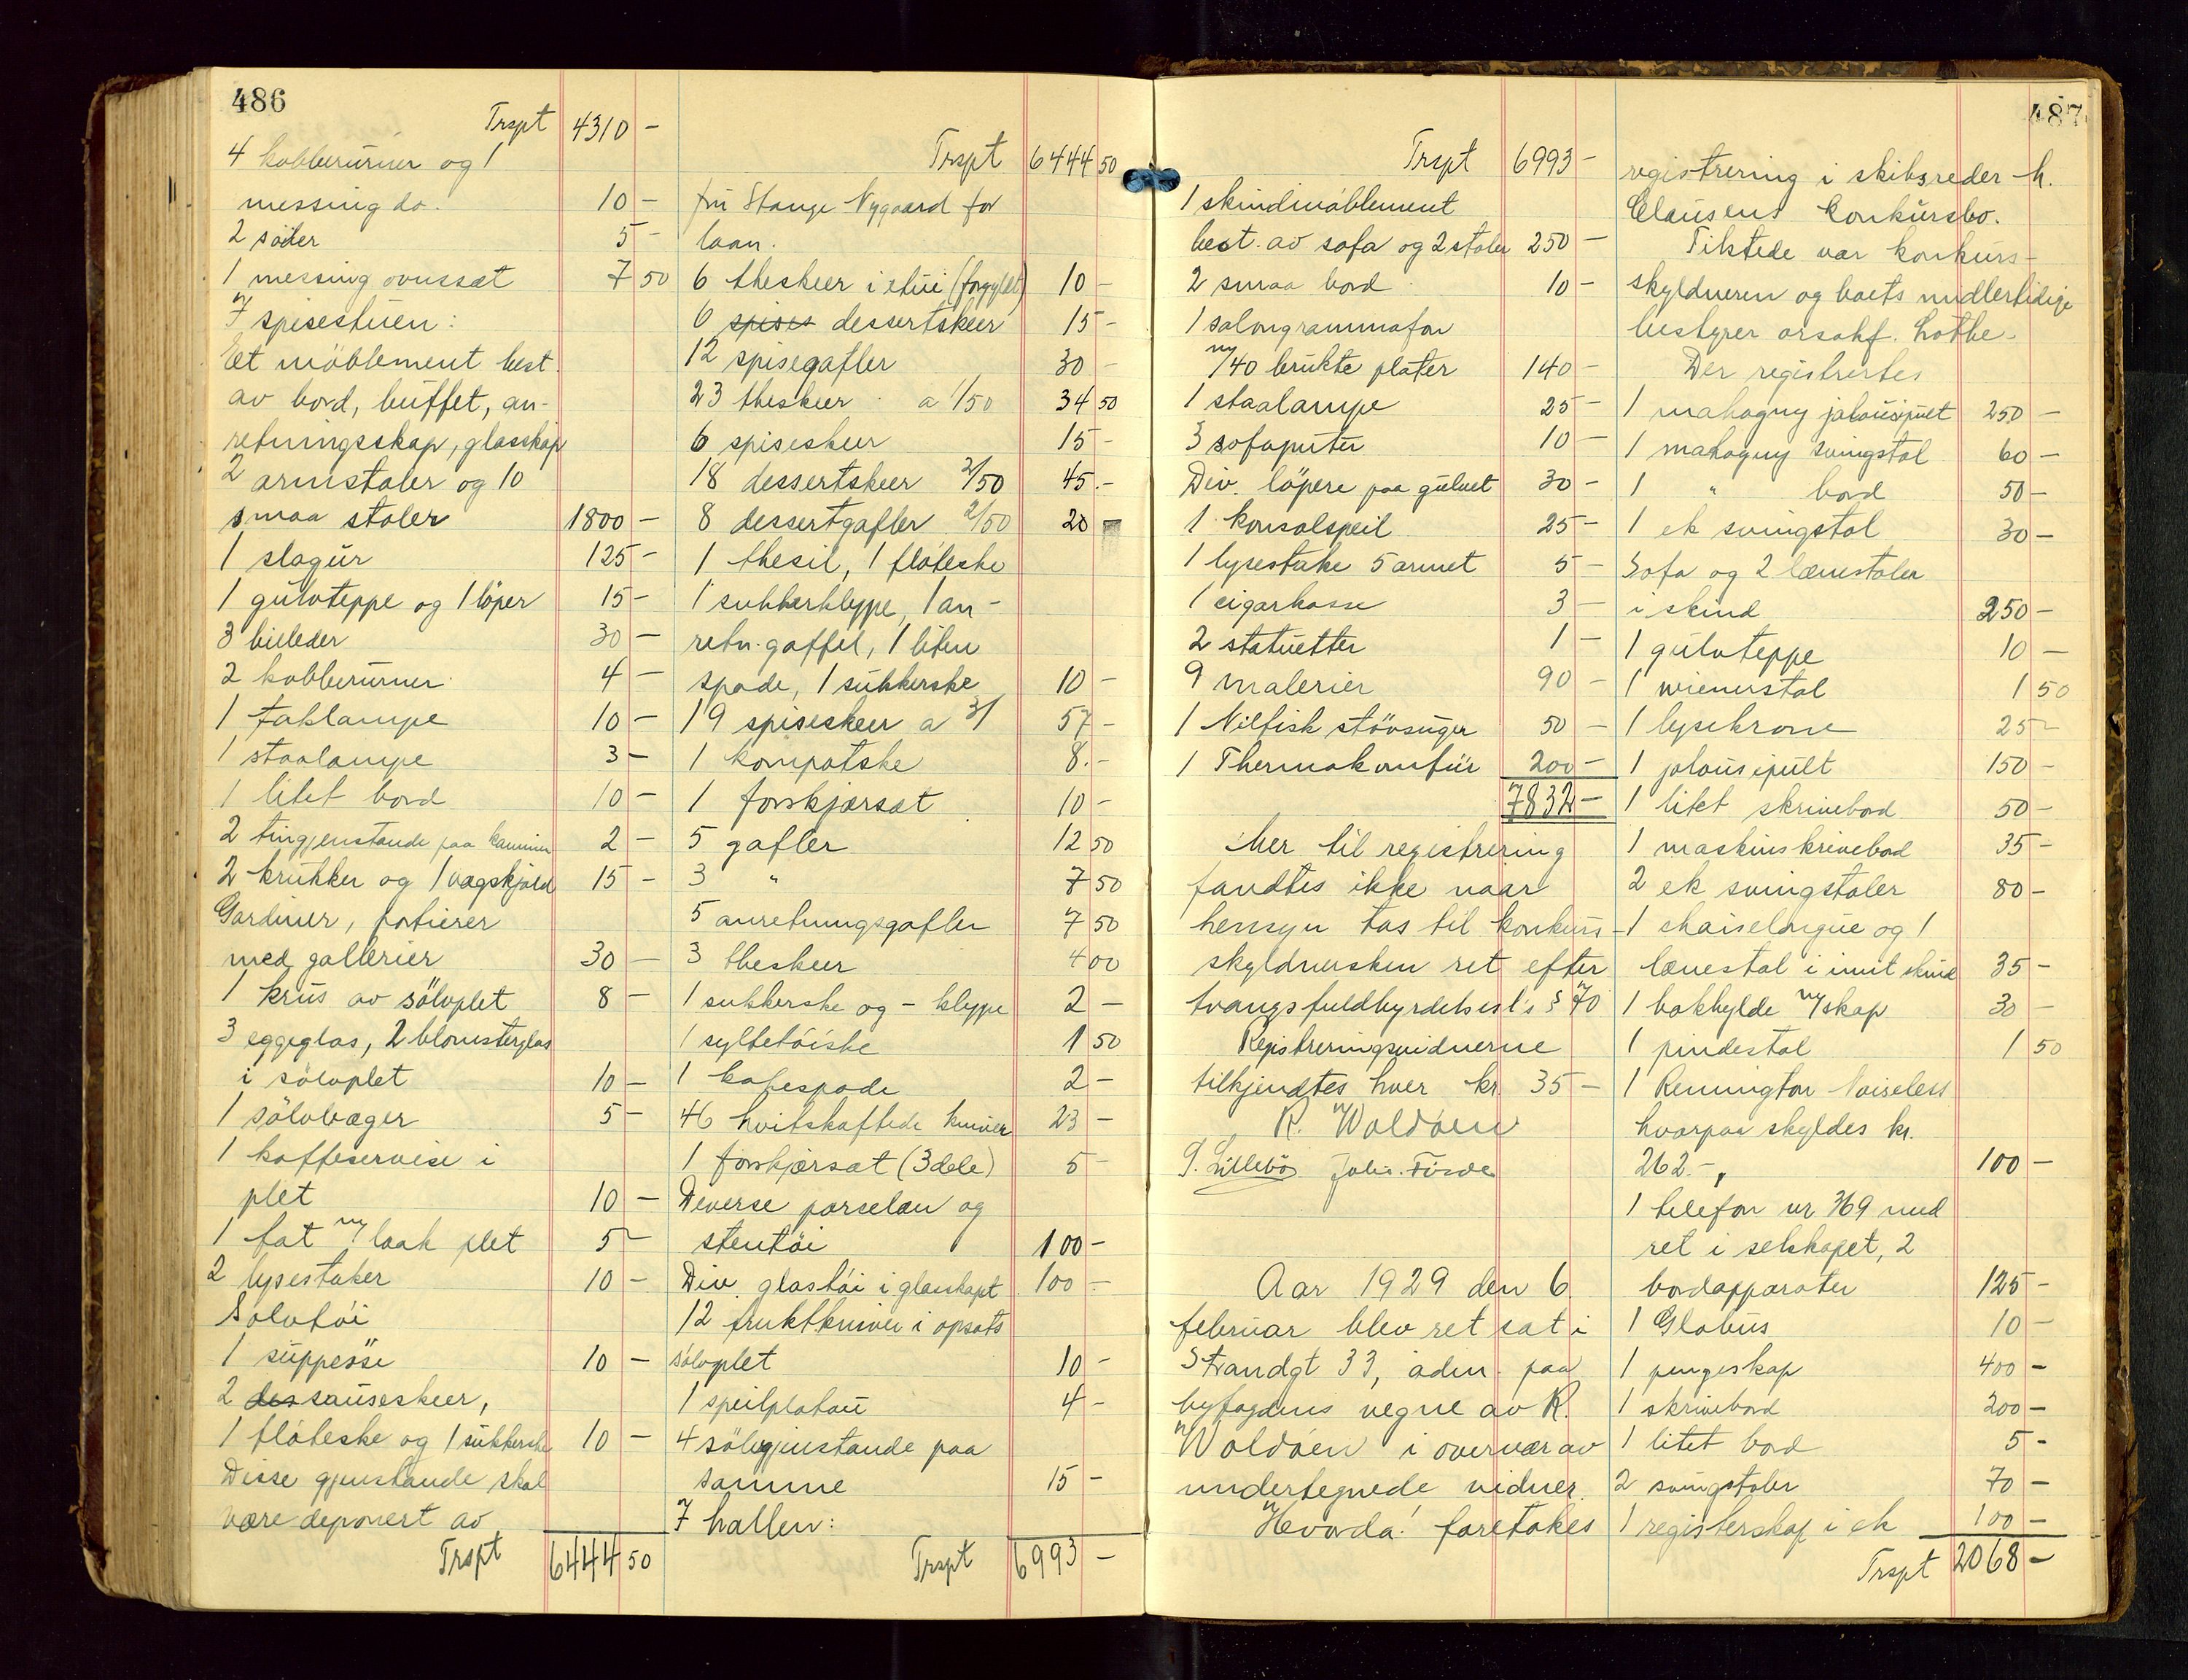 486
Trspt 4310 -
4 kobberurner og 1
messing do. 10 -
2 søiler 5 -
1 messing ovnssæt 7 50
I spisestuen:
Et möblement best.
av bord, buffet, an-
retningsskap, glasskap
2 armstoler og 10
smaa stoler 1800 -
1 slagur 125 -
1 gulvteppe og 1 löper 15 -
3 billeder 30 -
2 kobberurner 4 -
1 taklampe 10 -
1 staalampe 3 -
1 litet bord 10 -
2 tingjenstande paa kaminen 2 -
2 krukker og 1 vægskjold 15 -
Gardiner, portierer
med gallerier 30 -
1 krus av sölvplet 8 -
3 eggeglas, 2 blomsterglas
i sölvplet 10 -
1 sölvbæger 5 -
1 kaffeservise i
plet 10 -
1 fat m/ laak plet 5 -
2 lysestaker 10 -
Sølvtöi
1 suppeöse 10 -
2 des sauseskeer,
1 flöteske og 1 sukkerske 10 -
Disse gjenstande skal
være deponert av
Trspt 6444 50
Trspt 6444 50
fru Stange Nygaard for
laan.
6 theskeer i etui (forgyldt) 10 -
6 spises dessertskeer 15 -
12 spisegafler 30 -
23 theskeer a 1/50 34 50
6 spiseskeer 15 -
18 dessertskeer 2/50 45 -
8 dessertgafler 2/50 20 -
1 thesil, 1 flöteske
1 sukkerklype, 1 an-
retn. gaffel, 1 liten
spade, 1 sukkerske 10 -
19 spiseskeer a 3/ 57 -
1 kompotske 8 -
1 forskjærsæt 10 -
5 gafler 12 50
3 " 7 50
5 anretningsgafler 7 50
3 theskeer 4 00
1 sukkerske og - klype 2 -
1 syltetöiske 1 50
1 kakespade 2 -
46 hvitskaftede kniver 23 -
1 forskjærsæt (3 dele) 5 -
Diverse porselan og
stentöi 100 -
Div. glastöi i glasskapet 100 -
12 fruktkniver i opsats
sölvplet 10 -
1 speilplatau 4 -
4 sölvgjenstande paa
samme 15 -
I hallen:
Trspt 6993 -
487
Trspt 6993 -
1 skindmöblement
best. av sofa og 2 stoler 250 -
2 smaa bord 10 -
1 salongrammofon
m/40 brukte plater 140 -
1 staalampe 25 -
3 sofaputer 10 -
Div. löpere paa gulvet 30 -
1 konsolspeil 25 -
1 lysestake 5 armet 5 -
1 cigarkasse 3 -
2 statuetter 1 -
9 malerier 90 -
1 Nilfisk stövsuger 50 -
1 Thermakomfur 200 -
7832 -
Mer til registrering
fandtes ikke naar
hensyn tas til konkurs-
skyldnersken ret efter
tvangsfuldbyrdelsesl's § 70
Registreringsvidnerne
tilkjendtes hver kr. 35 -
R. Woldöen
P. Lillebö Johs. Förde
Aar 1929 den 6.
februar blev ret sat i
Strandgt 33, adm. paa
byfogdens vegne av R.
Woldöen i overvær av
undertegnede vidner.
Hvorda! foretokes
registrering i skibsreder H.
Clausens konkursbo.
Tilstede var konkurs-
skyldneren og boets midlertidige
bestyrer orsakf. Lothe.
Der registrertes
1 mahogny jalousipult 250 -
1 mahogny svingstol 60 -
1 " bord 50 -
1 ek svingstol 30 -
Sofa og 2 lænestoler
i skind 250 -
1 gulvteppe 10 -
1 wienerstol 1 50
1 lysekrone 25 -
1 jalousipult 150 -
1 litet skrivebord 50 -
1 maskinskrivebord 35 -
2 ek svingstoler 80 -
1 chaiselongue og 1
lænestol i imit skind 35 -
1 bokhylde m/skap 30 -
1 pindestol 1 50
1 Remington Noiseless
hvorpaa skyldes kr.
262.-, 100 -
1 telefon nr 369 med
ret i selskapet, 2
bordapparater 125 -
1 Globus 10 -
1 pengeskap 400 -
1 skrivebord 200 -
1 litet bord 5 -
2 svingstoler 70 -
1 registerskap i ek 100 -
Trspt 2068 -